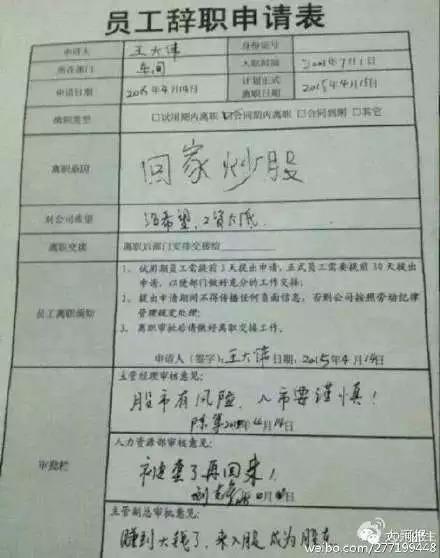 员工辞职申请表
申请人 王大伟 身份证号
所在部门 车间 入职时间 2001年7月1日
申请日期 2015年4月14日 计划正式离职日期 2015年4月15日
离职类型 □试用期内离职 ☑合同期内离职 □合同到期 □其它
离职原因 回家炒股
对公司希望 没希望,工资太低
离职交接 离职后部门安排交接给
员工离职须知
1、试用期员工需提前3天提出申请,正式员工需要提前30天提出
申请,以便部门做好充分的工作交接;
2、提出申请期间不得传播任何负面信息,否则公司按照劳动纪律
管理规定处理;
3、离职审批后请做好离职交接工作。
申请人(签字):王大伟 日期:2015年4月14日
审批栏
主管经理审核意见:
股市有风险,入市要谨慎!
4月14日
人力资源部审核意见:
被套了再回来!
主管副总审批意见:
赚到大钱了,来入股成为股东
大河报
weibo.com/277199448